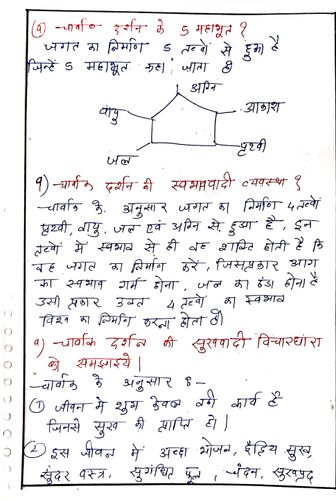 Q) - चार्वाक दर्शन के 5 महाभूत ?
जगत का निर्माण 5 तत्वों से हुआ है
जिन्हें 5 महाभूत कहा जाता है।
अग्नि
वायु
आकाश
जल
पृथ्वी
9) - चार्वाक दर्शन की स्वभाववादी व्यवस्था ?
- चार्वाक के अनुसार जगत का निर्माण 4 तत्वों
पृथ्वी, वायु, जल एवं अग्नि से हुआ है, इन
तत्वों में स्वभाव से ही वह शक्ति होती है कि
वह जगत का निर्माण करें, जिसप्रकार आग
का स्वभाव गर्म होना, जल का ठंडा होना है
उसी प्रकार उक्त 4 तत्वों का स्वभाव
विश्व का निर्माण करना होता है।
9) - चार्वाक दर्शन की सुखवादी विचारधारा
को समझाइये।
- चार्वाक के अनुसार :-
① जीवन में शुभ केवल वही कार्य है
जिनसे सुख की प्राप्ति हो।
② इस जीवन में अच्छा भोजन, दैहिय सुख,
सुंदर वस्त्र, सुगंधित फूल, चंदन, सुखप्रद